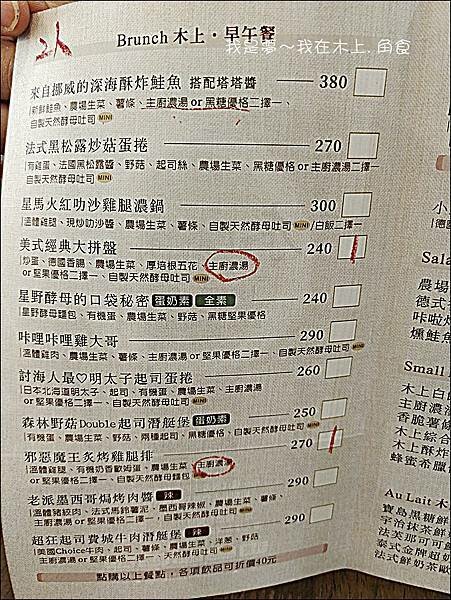 2人
Brunch 木上・早午餐
我是夢～我在木上.角食
來自挪威的深海酥炸鮭魚 搭配塔塔醬 380
新鮮鮭魚、農場生菜、薯條、主廚濃湯 or 黑糖優格二擇一、
自製天然酵母吐司 MINI
法式黑松露炒菇蛋捲 270
有雞蛋、法國黑松露醬、野菇、起司絲、農場生菜、黑糖優格 or 主廚濃湯二擇一
自製天然酵母吐司 MINI
星馬火紅叻沙雞腿濃鍋 300
溫體雞腿、現炒叻沙醬、農場生菜、薯條、自製天然酵母吐司 MINI /白飯二擇一
美式經典大拼盤 240
炒蛋、德國香腸、農場生菜、厚培根五花、主廚濃湯
or 堅果優格二擇一、自製天然酵母吐司 MINI
星野酵母的口袋秘密 蛋奶素 全素 240
星野酵母麵包、有機蛋、農場生菜、野菇、黑糖堅果優格
咔哩咔哩雞大哥 290
溫體雞肉、農場生菜、薯條、主廚濃湯 or 堅果優格二擇一、自製天然酵母吐司 MINI
討海人最♡明太子起司蛋捲 260
日本北海道明太子、起司、有機蛋、農場生菜、主廚濃湯
or 堅果優格二擇一、自製天然酵母吐司 MINI
森林野菇Double起司潛艇堡 蛋奶素 250
有機蛋、農場生菜、野菇、兩種起司、黑糖優格、自製天然酵母吐司 MINI
邪惡魔王炙烤馬鈴雞腿排 270
溫體雞腿、有機奶香歐姆蛋、農場生菜、主廚濃湯
or 堅果優格二擇一、自製天然酵母麵包 MINI
老派墨西哥焗烤肉醬 辣 290
溫體豬絞肉、手工馬鈴薯泥、墨西哥辣椒、農場生菜、薯條、
主廚濃湯 or 堅果優格二擇一、自製天然酵母吐司 MINI
超狂起司費城牛肉潛艇堡 辣 290
美國Choice牛肉、起司、薯條、農場生菜、洋蔥、野菇
點購以上餐點，各項飲品可折價40元
小
Sala
農場
德式
咔啦
燻鮭魚
Small
木上白
主廚濃
香脆薯條
木上綜合
木上酥炸
蜂蜜希臘
Au Lait 木
寶島黑糖鮮
宇治抹茶鮮
法芙那可可鮮
泰式金牌超奶
法式鮮奶茶歐